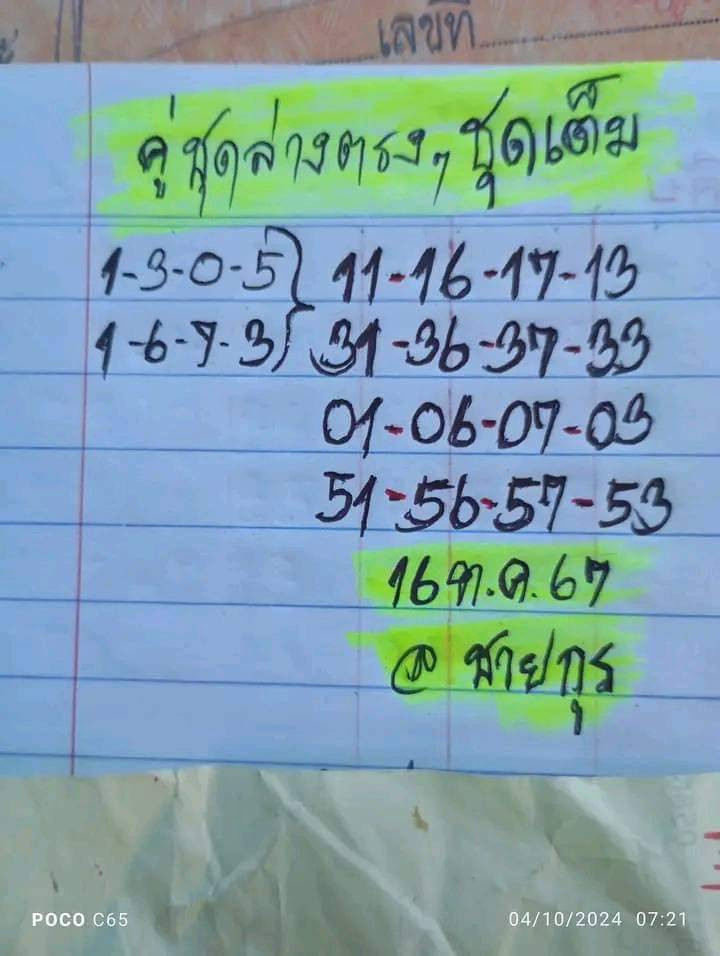 เลขที่
คู่ชุดล่างตรงๆ ชุดเต็ม
1-3-0-5 } 11-16-17-13
1-6-7-3 } 31-36-37-33
01-06-07-03
51-56-57-53
16 ต.ค. 67
@ ชายกุร
POCO C65
04/10/2024 07:21